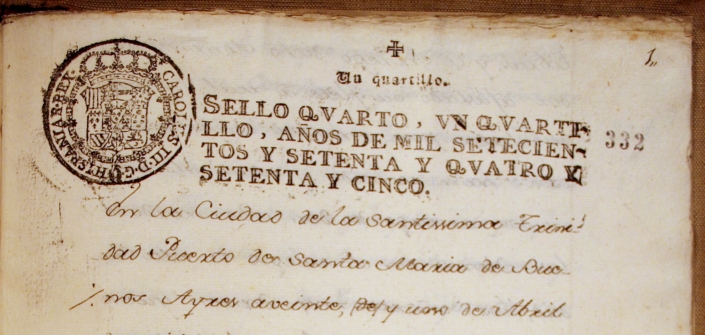 ✠
1,,
Un quartillo.
CAROLVS III D G HISPANIAR REX
SELLO QVARTO, VN QVARTI-
LLO, AÑOS DE MIL SETECIEN-
TOS Y SETENTA Y QVATRO Y
SETENTA Y CINCO.
332
En la Ciudad de la Santissima Trini
dad Puerto de Santa Maria de Bue
nos Ayres a veinte, (de) y uno de Abril